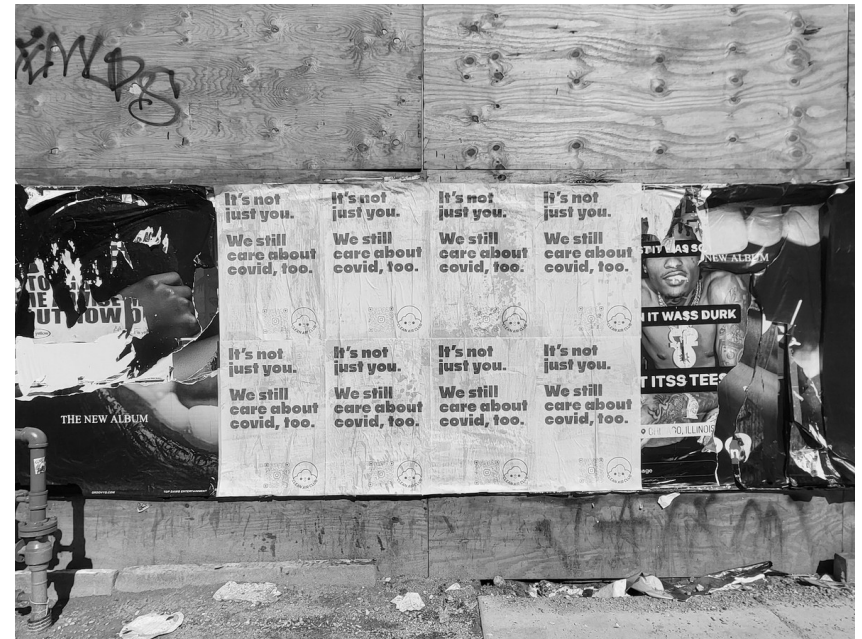 THE NEW ALBUM
It's not
just you.
We still
care about
covid, too.
It's not
just you.
We still
care about
covid, too.
It's not
just you.
We still
care about
covid, too.
It's not
just you.
We still
care about
covid, too.
It's not
just you.
We still
care about
covid, too.
It's not
just you.
We still
care about
covid, too.
It's not
just you.
We still
care about
covid, too.
It's not
just you.
We still
care about
covid, too.
NEW ALBUM
IT WA$$ DURK
ILLINOIS